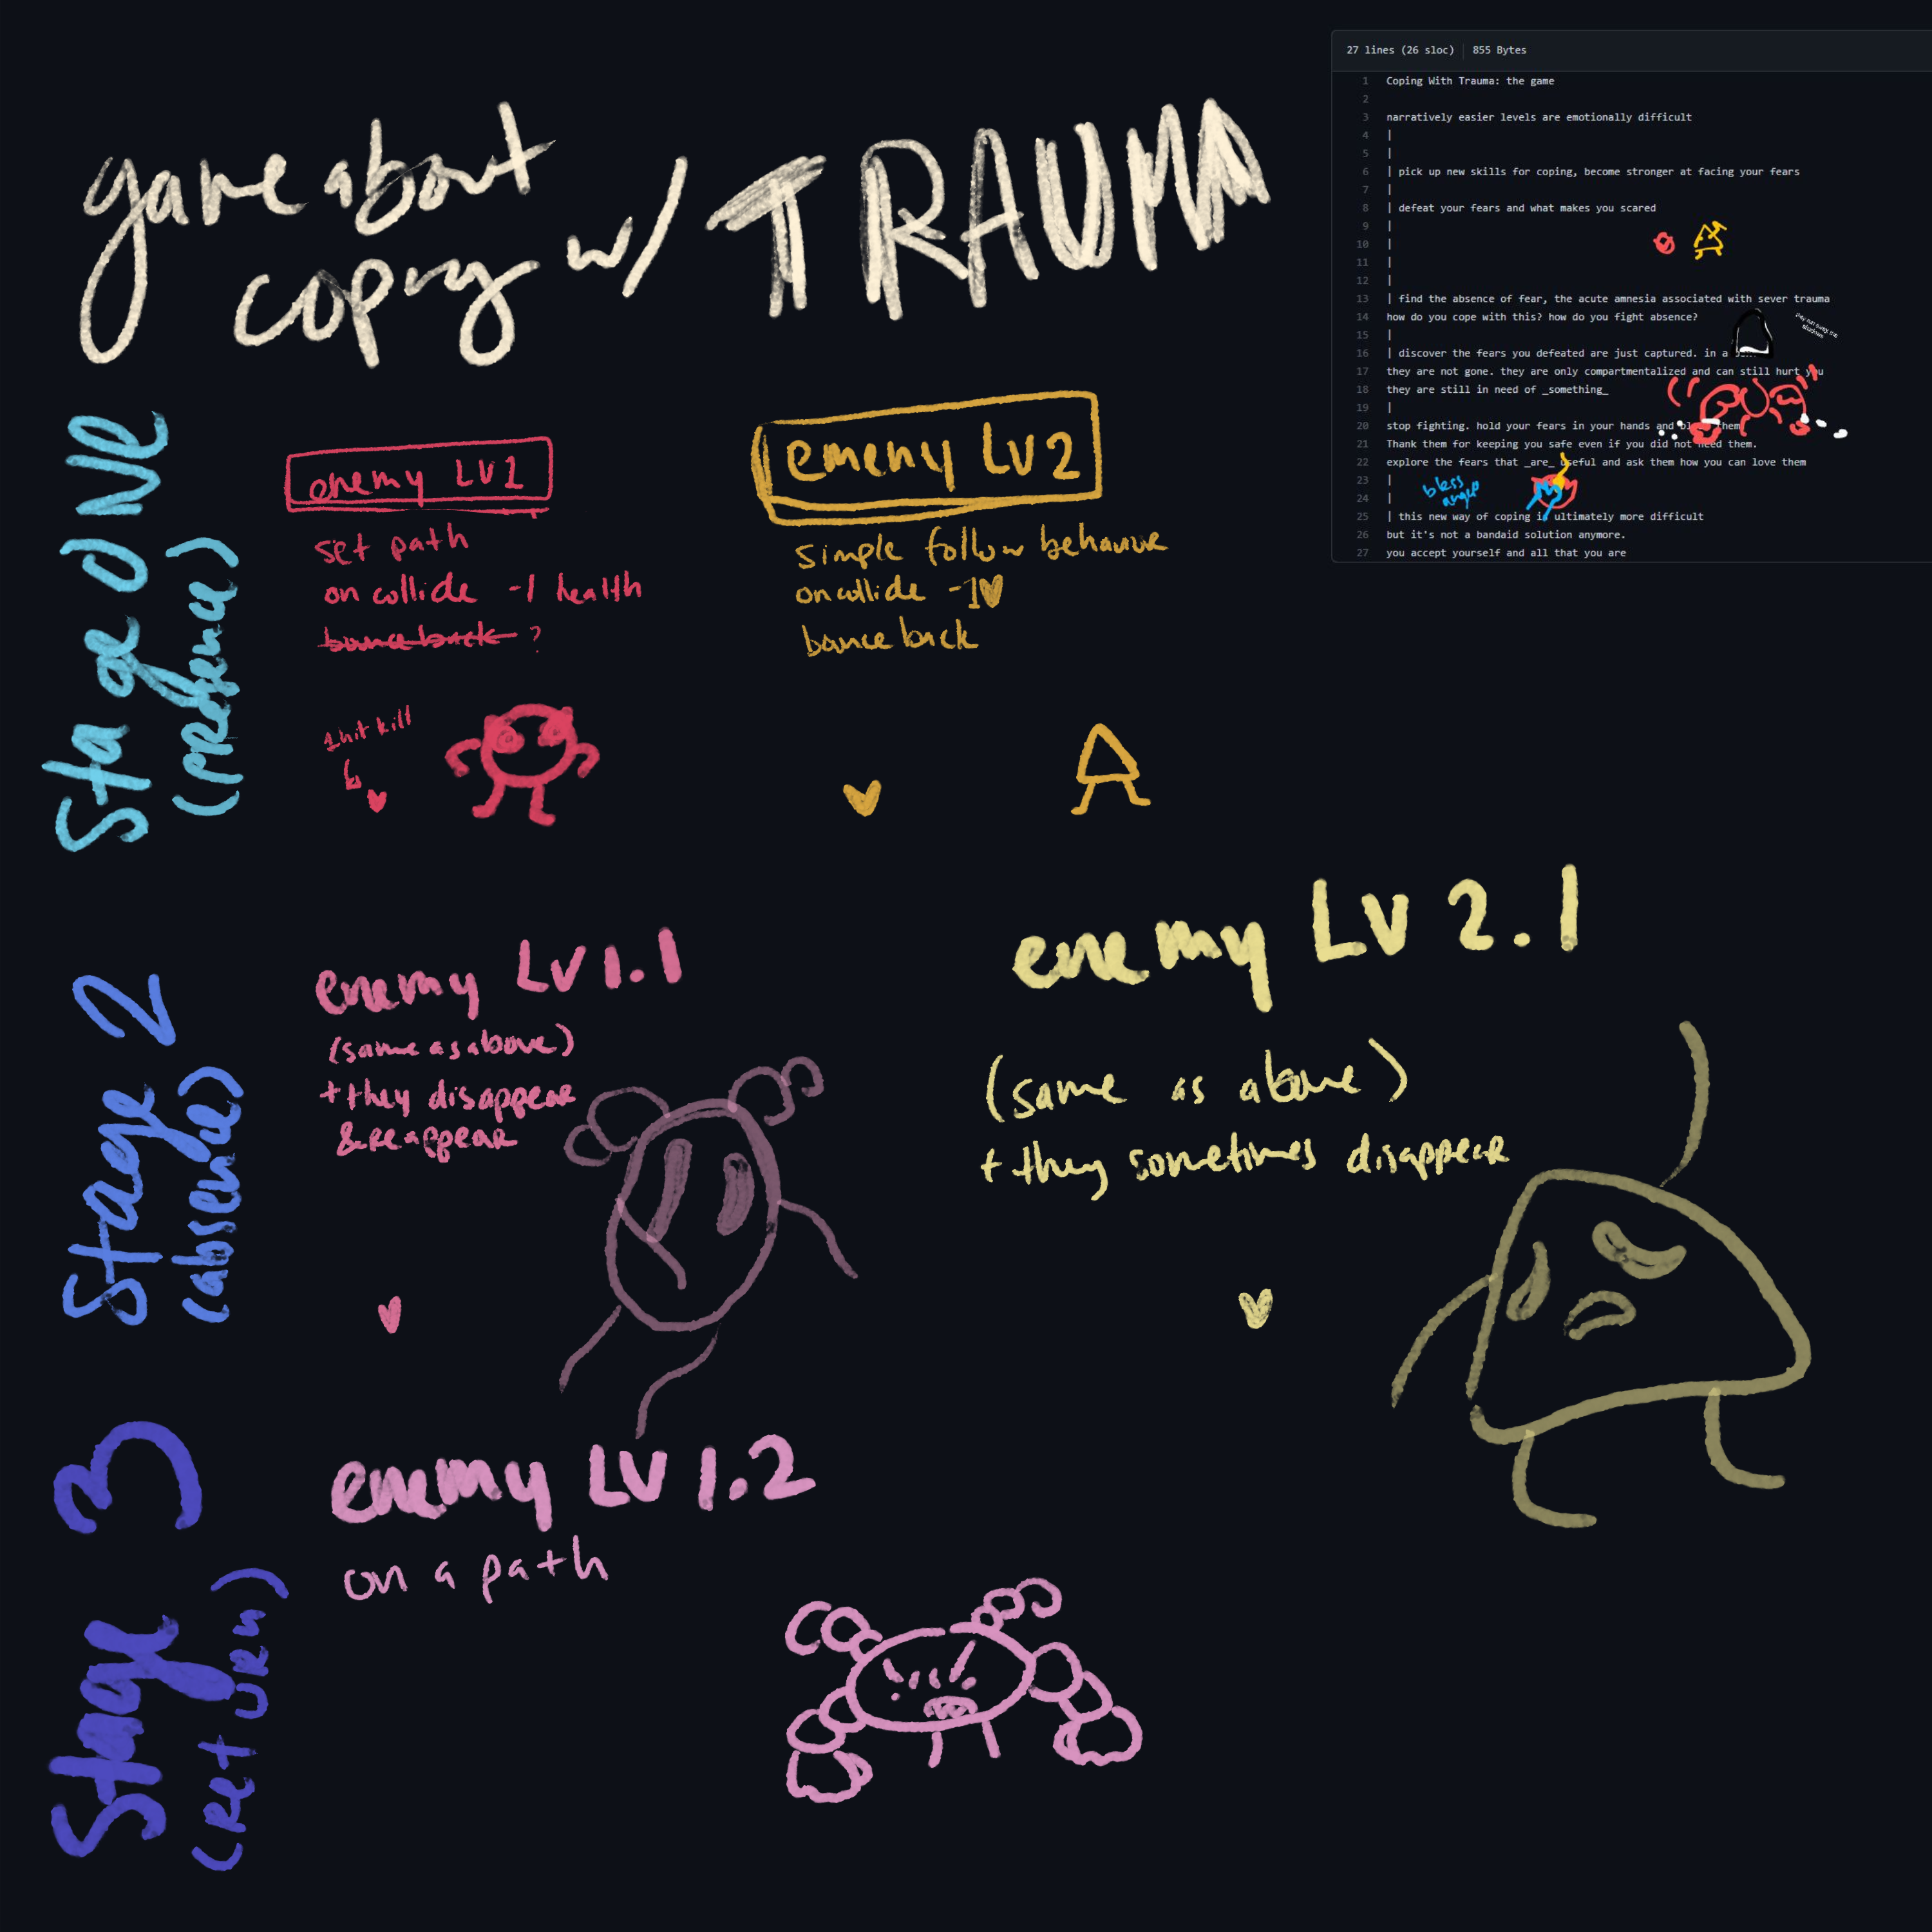 game about
coping w/ TRAUMA
27 lines (26 sloc) 855 Bytes
1 Coping With Trauma: the game
2
3 narratively easier levels are emotionally difficult
4 |
5 |
6 | pick up new skills for coping, become stronger at facing your fears
7 |
8 | defeat your fears and what makes you scared
9 |
10 |
11 |
12 |
13 | find the absence of fear, the acute amnesia associated with sever trauma
14 how do you cope with this? how do you fight absence?
15 |
16 | discover the fears you defeated are just captured. in a
17 they are not gone. they are only compartmentalized and can still hurt you
18 they are still in need of _something_
19 |
20 stop fighting. hold your fears in your hands and them
21 Thank them for keeping you safe even if you did not need them.
22 explore the fears that _are_ useful and ask them how you can love them
23 |
24 |
bless
anger
25 | this new way of coping is ultimately more difficult
26 but it's not a bandaid solution anymore.
27 you accept yourself and all that you are
Stage ONE
(presence)
enemy LV1
set path
on collide -1 health
bounce back ?
1 hit kill
emeny LV2
simple follow behavior
on collide -1
bounce back
Stage 2
(absence)
enemy LV 1.1
(same as above)
+ they disappear
& reappear
enemy LV 2.1
(same as above)
+ they sometimes disappear
Stage 3
(return)
enemy LV 1.2
on a path